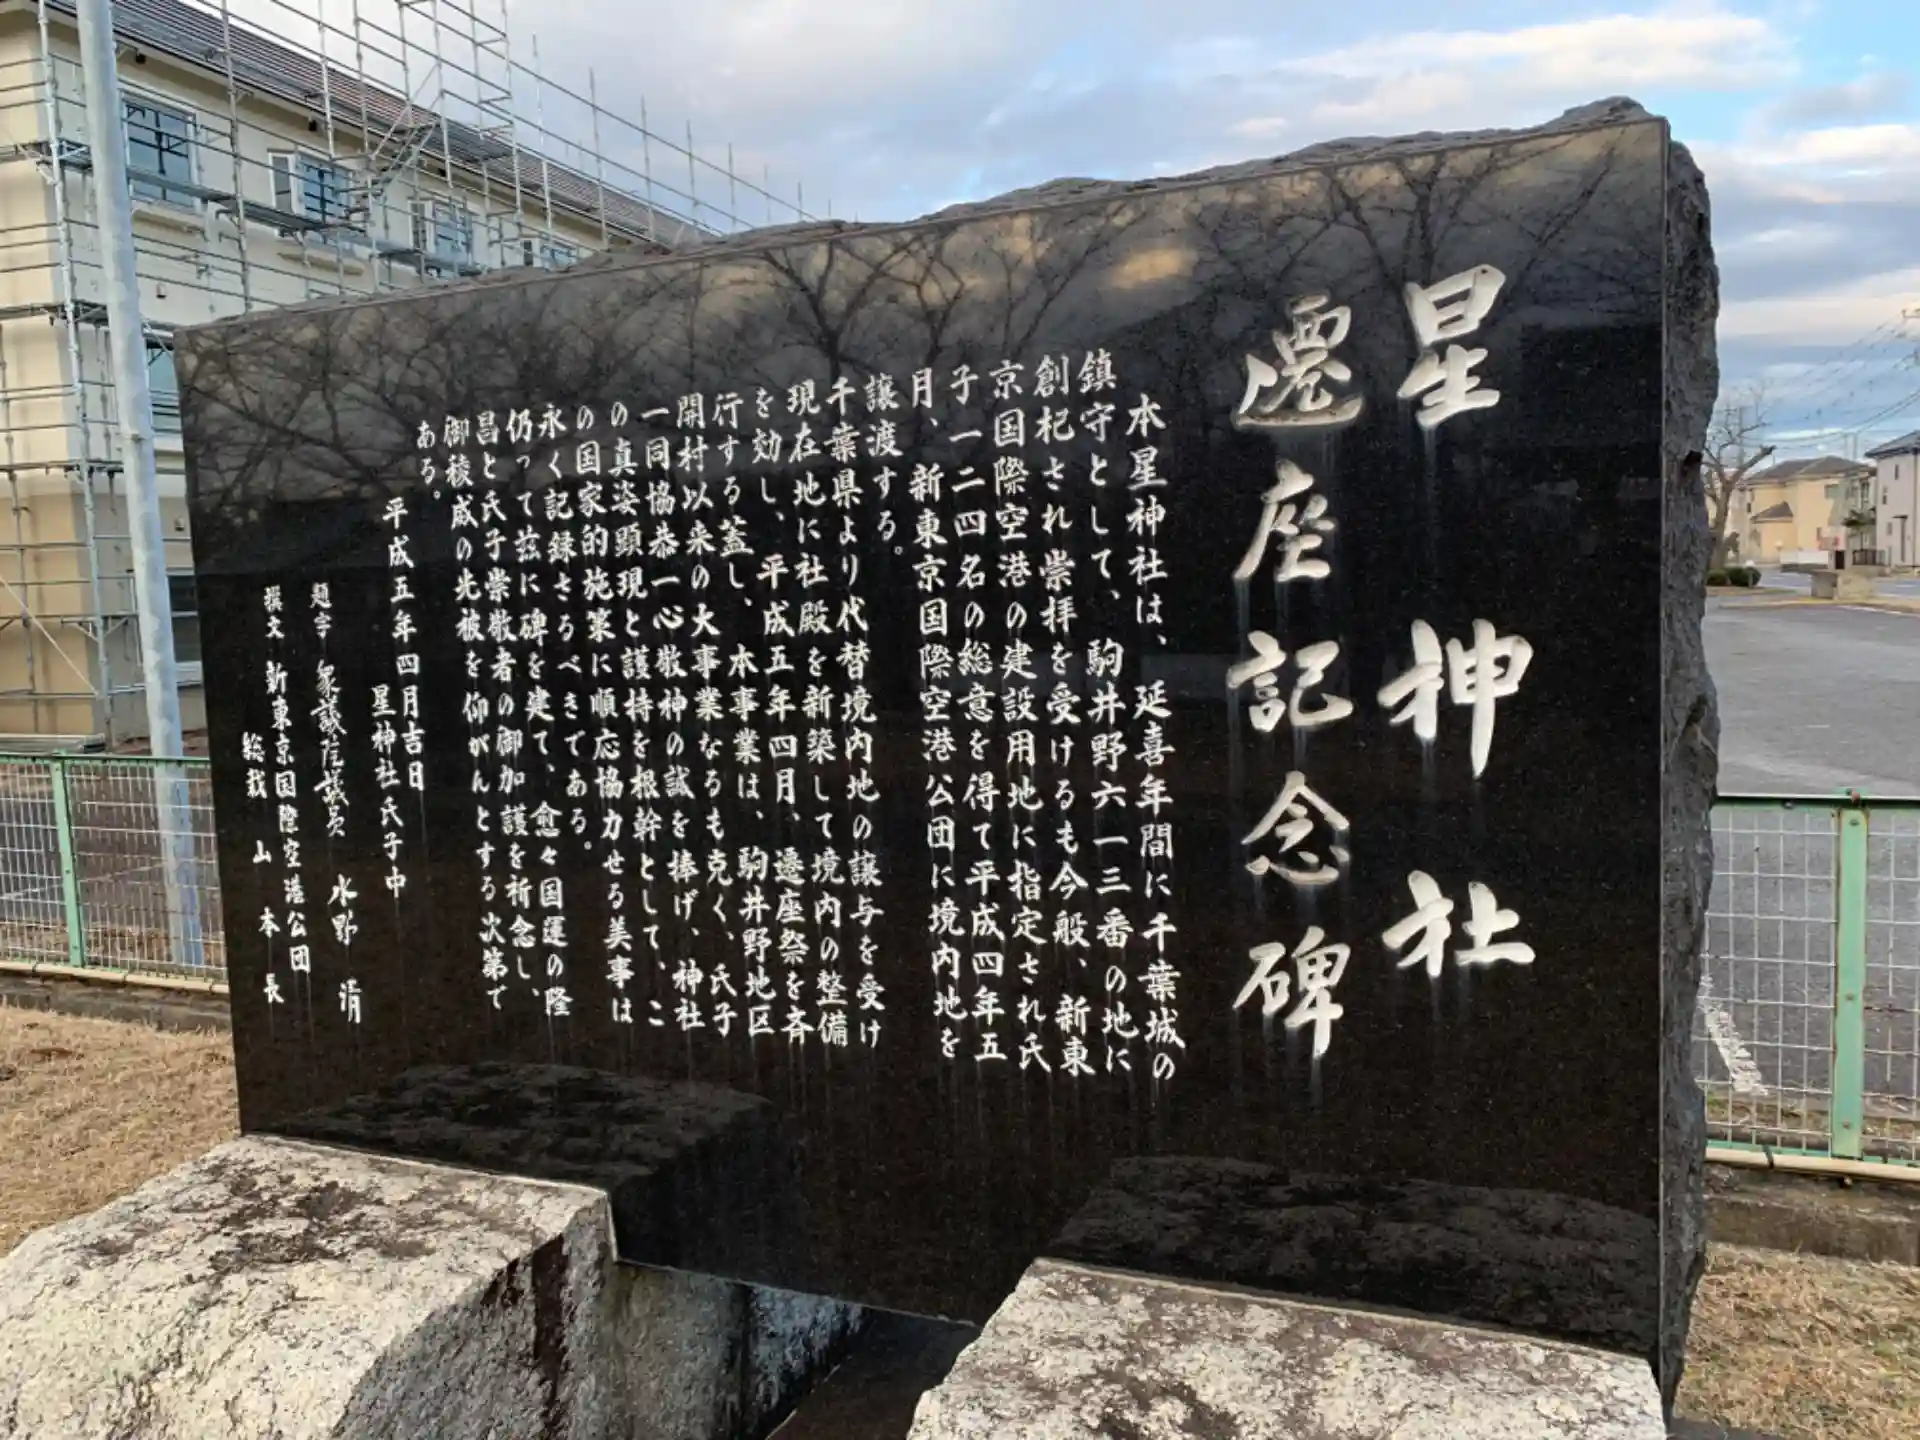 星神社
遷座記念碑
本星神社は、延喜年間に千葉城の
鎮守として、駒井野六一三番の地に
創杞され崇拝を受けるも今般、新東
京国際空港の建設用地に指定され氏
子一二四名の総意を得て平成四年五
月、新東京国際空港公団に境内地を
譲渡する。
千葉県より代替境内地の譲与を受け
現在地に社殿を新築して境内の整備
を効し、平成五年四月、遷座祭を斉
行する蓋し、本事業は、駒井野地区
開村以来の大事業なるも克く、氏子
一同協恭一心敬神の誠を捧げ、神社
の真姿顕現と護持を根幹として、こ
の国家的施策に順応協力せる美事は
永く記録さるべきである。
仍って茲に碑を建て、愈々国運の隆
昌と氏子崇敬者の御加護を祈念し、
御稜威の光被を仰がんとする次第で
ある。
平成五年四月吉日
星神社氏子中
題字 衆議院議員 水野清
撰文 新東京国際空港公団
総裁 山本長